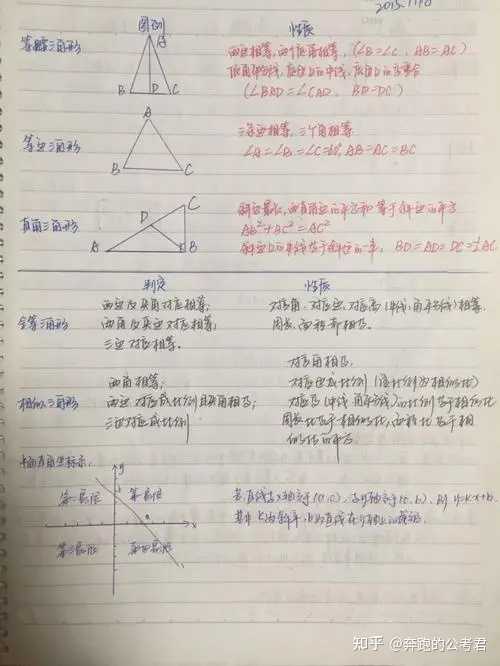 2015.11.10
图例 性质
等腰三角形
A
B D C
两边相等,两个底角相等,(∠B=∠C, AB=AC)
顶角平分线,底边上的中线,底边上的高重合
(∠BAD=∠CAD, BD=DC)
等边三角形
A
B C
三条边相等,三个角相等
∠A=∠B=∠C=60°, AB=AC=BC
直角三角形
C
D
A B
斜边最长,两直角边的平方和等于斜边的平方
AB²+BC²=AC²
斜边上的中线等于斜边的一半, BD=AD=DC=½AC
判定 性质
全等三角形
两边及夹角对应相等;
两角及夹边对应相等;
三边对应相等。
对应角、对应边、对应高(中线、角平分线)相等.
周长、面积都相等。
相似三角形
两角相等;
两边对应成比例且夹角相等;
三边对应成比例
对应角相等,
对应边成比例(该比例为相似比)
对应高(中线、角平分线)的比例等于相似比
周长比等于相似比,面积比等于相
似比的平方.
平面直角坐标系.
y
第二象限 第一象限
x
第三象限 第四象限
若直线与x轴交于 与y轴交于 则 y=kx+b.
其中k为斜率, b为直线在y轴上的截距.
知乎 @奔跑的公考君